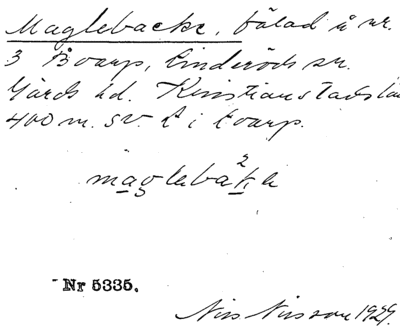 Maglebacke, fälad å nr.
3 Boarp, Linderöds sn.
Gärds hd. Kristianstads län
400 m. SV. B i Boarp.
maglebakke
Nr 5335.
Nils Nilsson 1929.